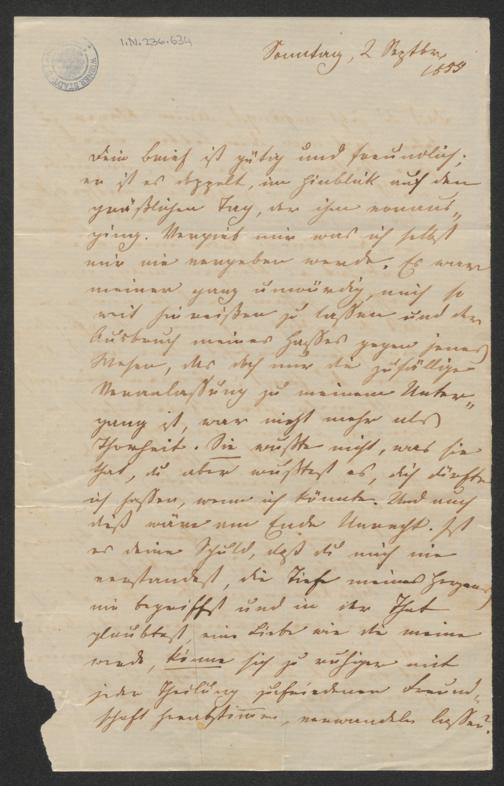 I.N. 236.634
WIENER STADT
Sonntag, 2 Septbr
1855
Dein Brief ist gütig und freundlich;
er ist es doppelt, im Hinblick auf den
gräßlichen Tag, der ihm voraus„
ging. Vergieb mir was ich selbst
mir nie vergeben werde. Es war
meiner ganz unwürdig, mich so
weit hinreißen zu lassen und der
Ausbruch meines Hasses gegen jenes
Wesen, das doch nur die zufällige
Veranlassung zu meinem Unter„
gang ist, war nicht mehr als
Thorheit. Sie wußte nicht, was sie
that, du aber wußtest es, dich dürfte
ich hassen, wenn ich könnte. Und auch
dieß wäre am Ende Unrecht. Ist
es deine Schuld, daß du mich nie
verstandest, die Tiefe meines Herzens
nie begriffst und in der That
glaubtest eine Liebe wie die meine
werde, könne sich zu ruhiger mit
jeder Theilung zufriedenen Freund„
schaft herabstimmen, verwandeln lassen?